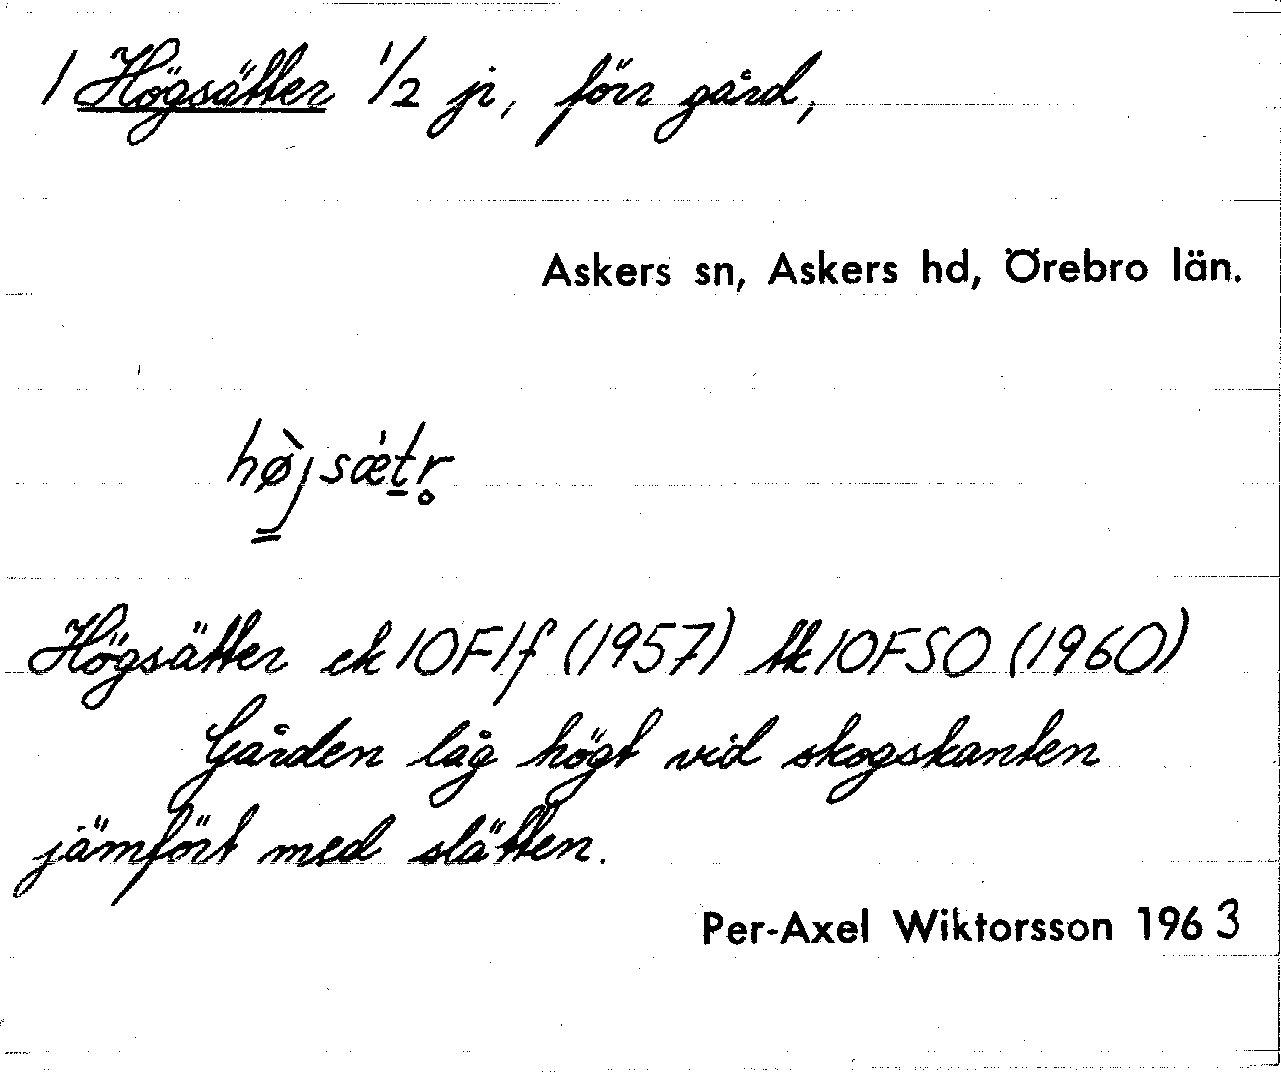 1 Högsätter 1/2 jr, förr gård,
Askers sn, Askers hd, Örebro län.
hø̀jsǽtr̥
Högsätter ek 10F1f (1957) tk 10FSO (1960)
Gården låg högt vid skogskanten
jämfört med slätten.
Per-Axel Wiktorsson 1963